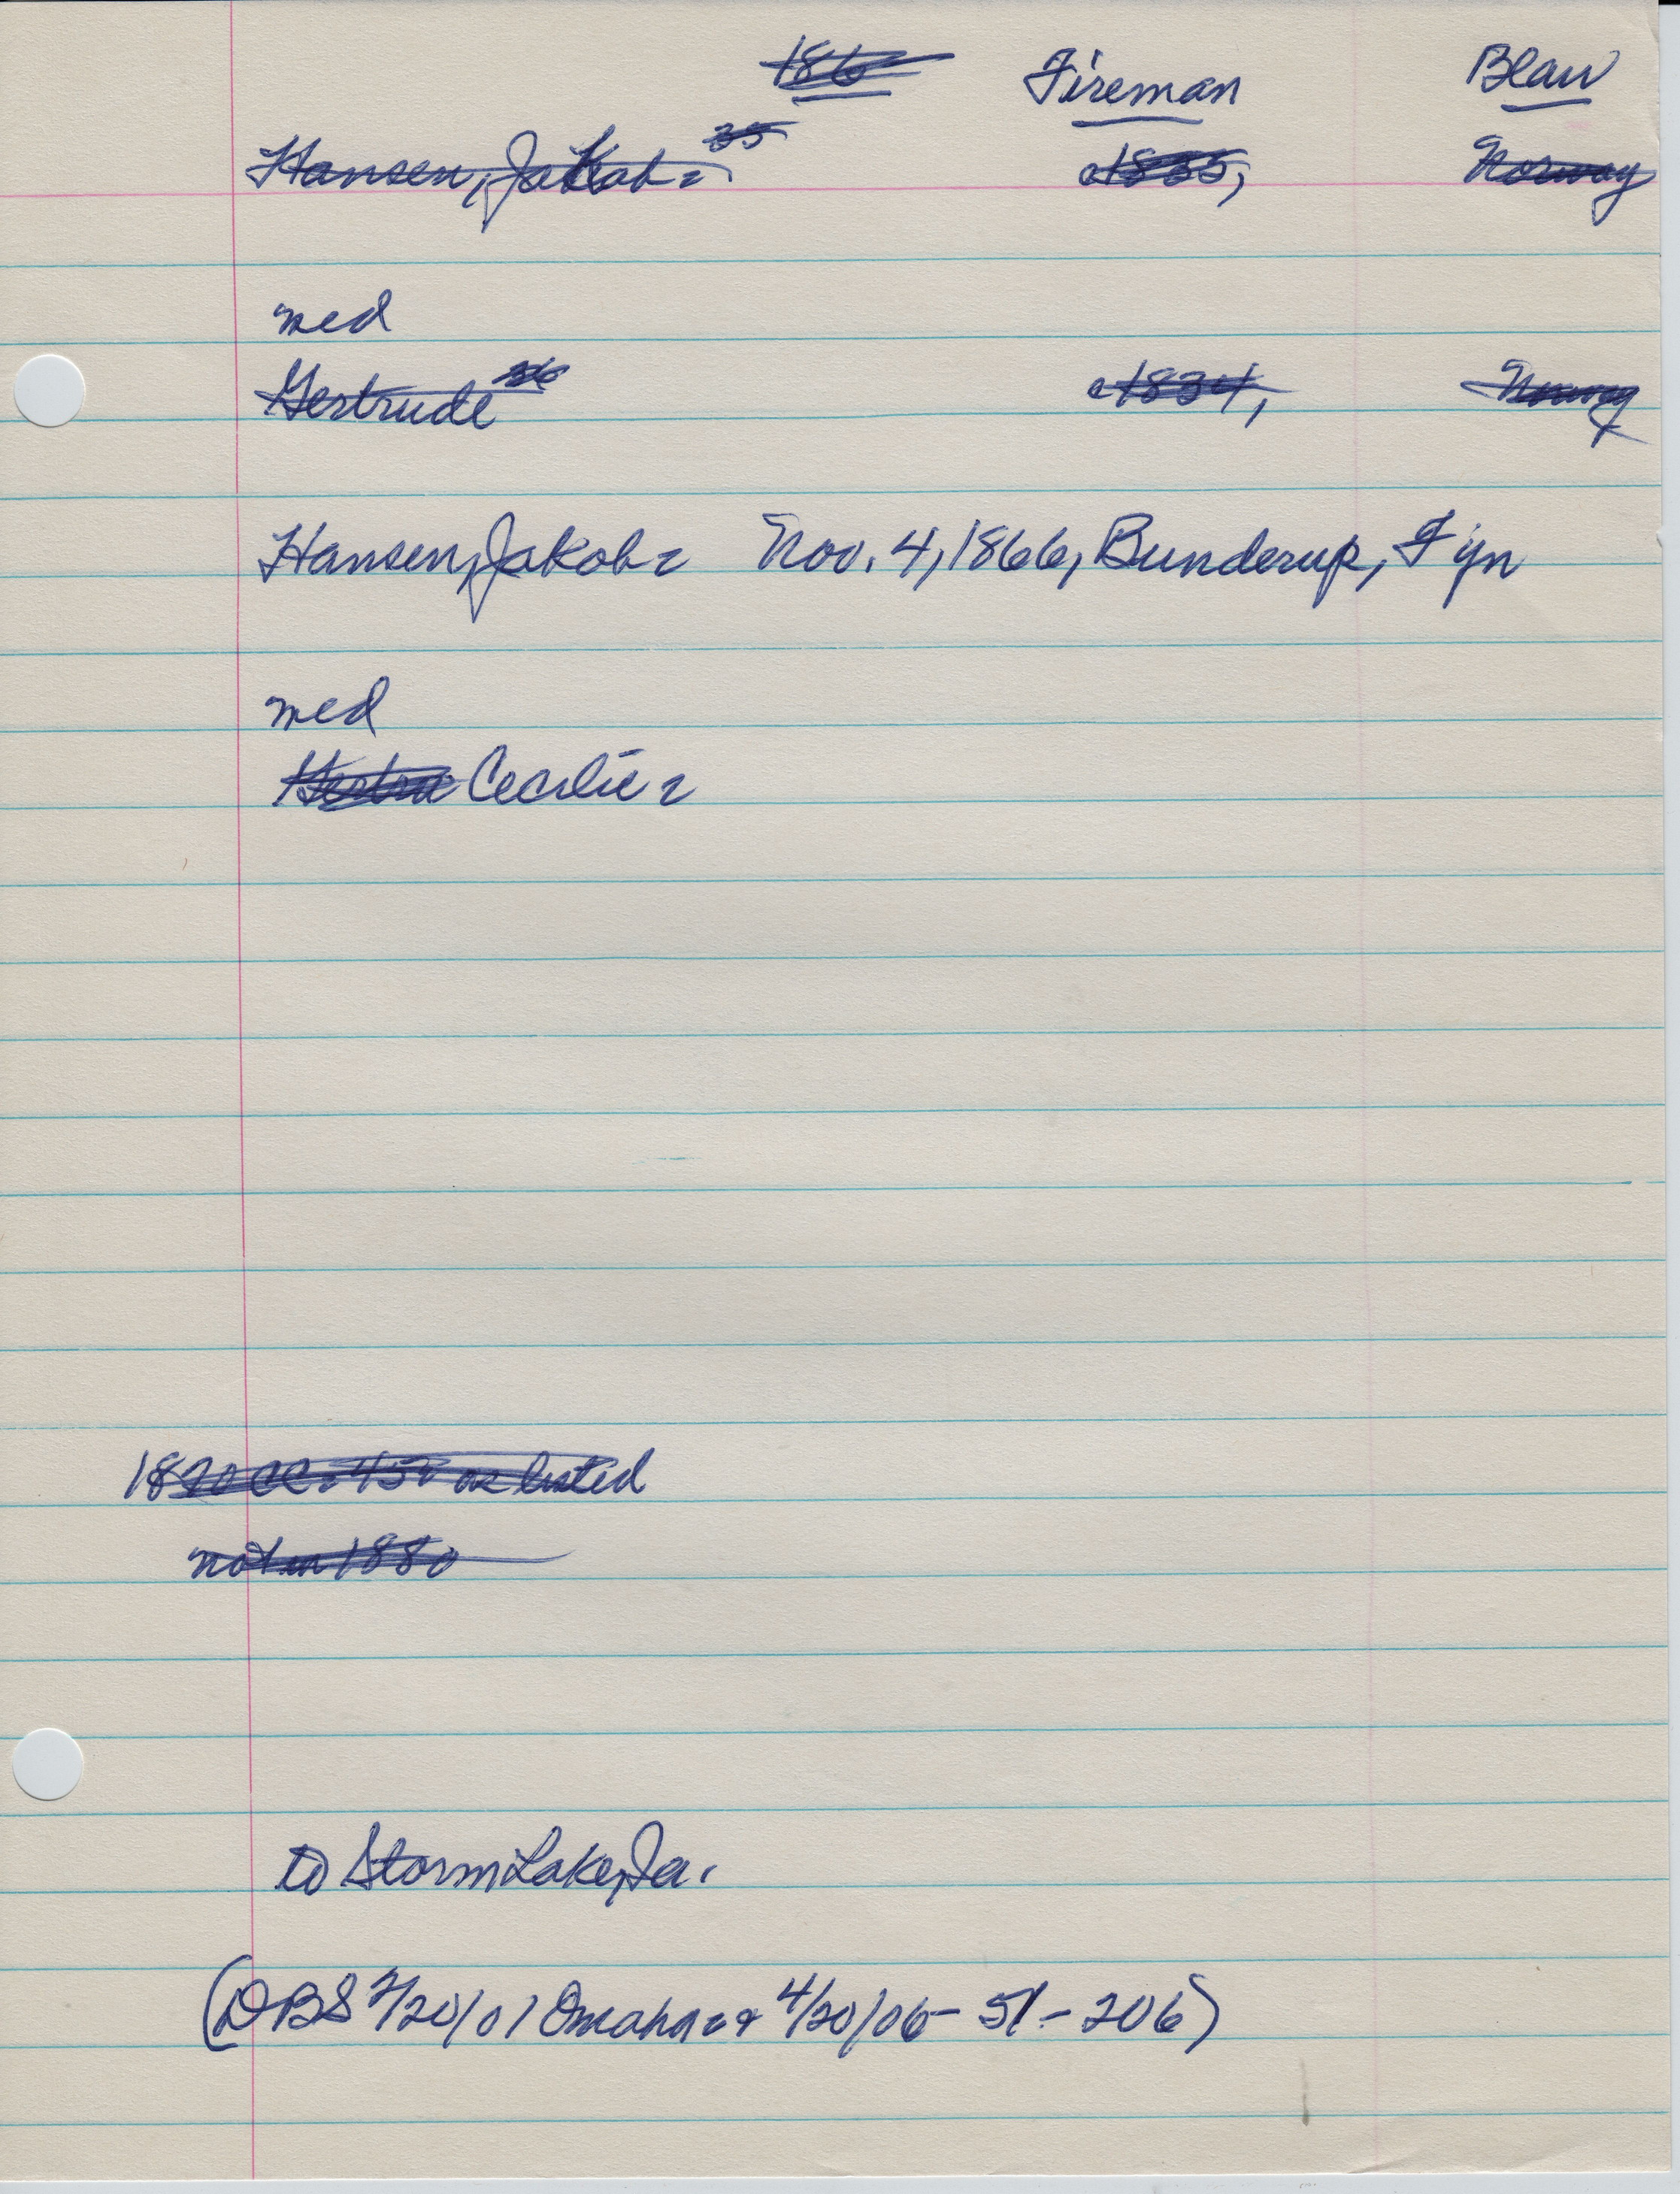 186 Fireman Blaw
Hansen, Jakob = 35 c1835, Norway
med
Gertrude 36 c1834, Norway
Hansen, Jakob = Nov. 4, 1866, Bunderup, Fyn
med
Gertru Cecilie =
1870 CC = 45 = as listed
not in 1880
to Storm Lake, Ia.
(DBS 2/20/01 Omaha = & 4/20/06 - 51 - 206)